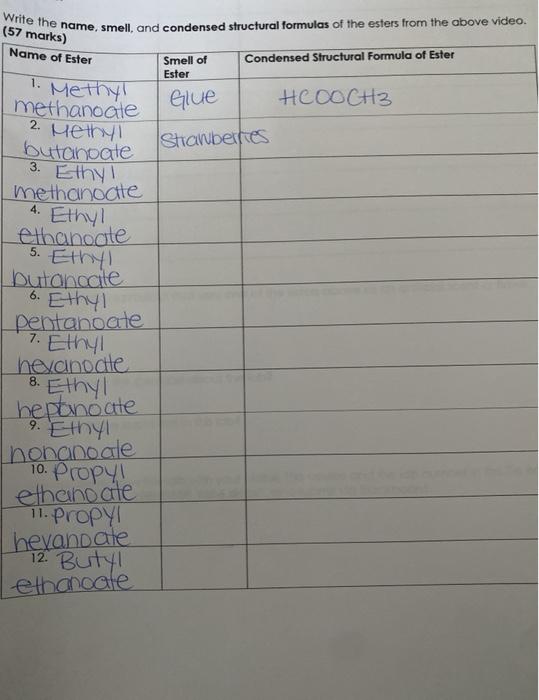 Write the name, smell, and condensed structural formulas of the esters from the above video.
(57 marks)
Name of Ester
Smell of
Ester
Condensed Structural Formula of Ester
1. Methyl
methanoate
Glue
HCOOCH3
2. Methyl
butanoate
Strawberries
3. Ethyl
methanoate
4. Ethyl
ethanoate
5. Ethyl
butanoate
6. Ethyl
pentanoate
7. Ethyl
hexanoate
8. Ethyl
heptanoate
9. Ethyl
nonanoate
10. Propyl
ethanoate
11. Propyl
hexanoate
12. Butyl
ethanoate